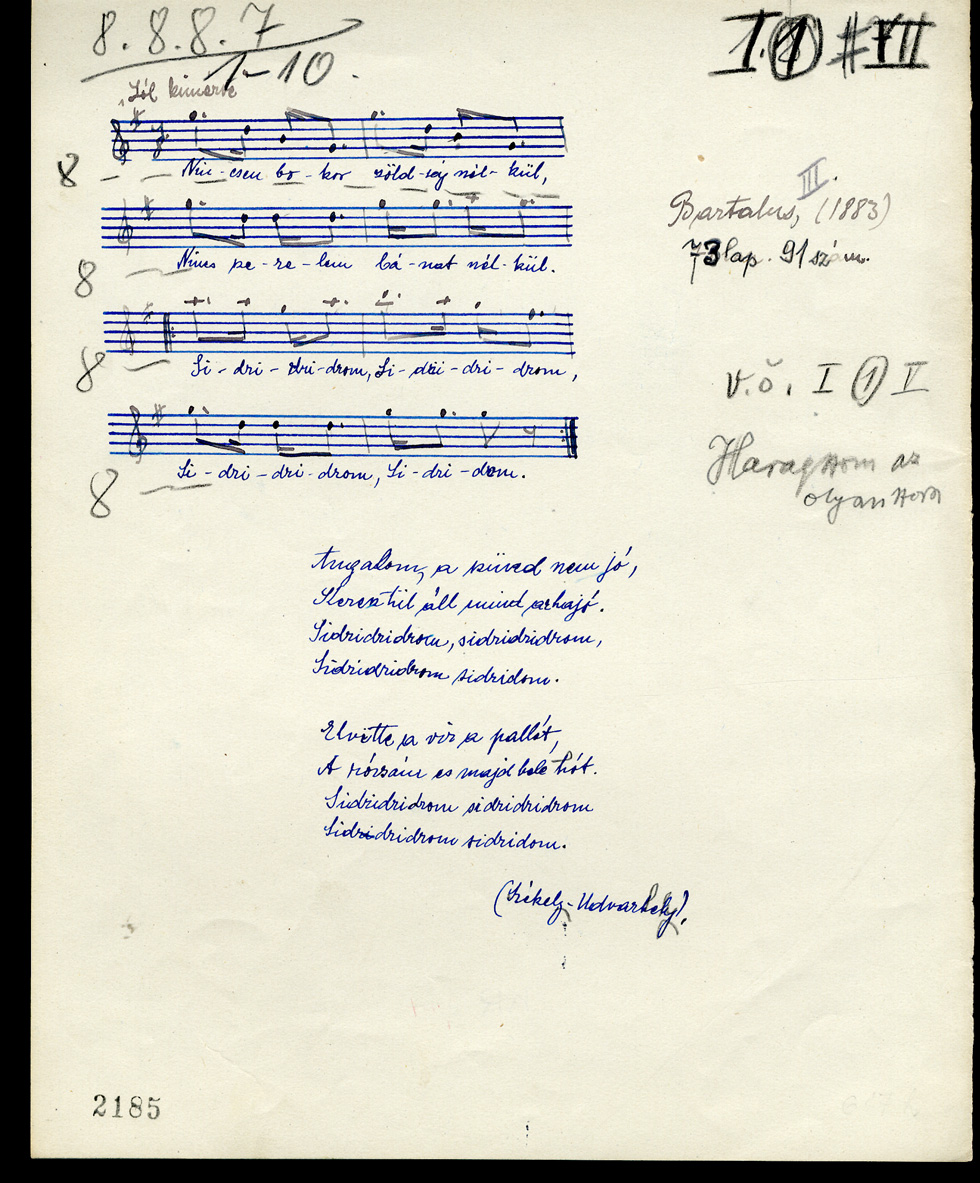 8. 8. 8. 7
1-10.
I. 1 VII
Jól kimérve
8
Nin-csen bo-kor zöld-ség nél-kül,
III.
Bartalus, (1883)
73 lap. 91 szám.
8
Nincs sze-re-lem bá-nat nél-kül.
8
Si-dri-dri-drom, Si-dri-dri-drom,
v.ö. I 1 V
Haragszom az
olyan szóra
8
Si-dri-dri-drom, Si-dri-dom.
Angalom, a szüved nem jó,
Keresztül áll mind a hajó.
Sidridridrom, sidridridrom,
Sidridridrom sidridom.
Elvitte a víz a pallót,
A rózsám es majd belé hót.
Sidridridrom sidridridrom
Sidridridrom sidridom.
(Székely-Udvarhely).
2185